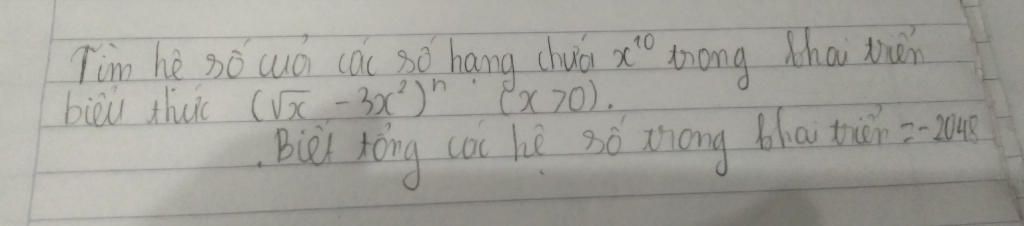 Tìm hệ số của các số hạng chứa x¹⁰ trong khai triển
biểu thức (√x - 3x²)ⁿ (x>0).
Biết tổng các hệ số trong khai triển = -2048